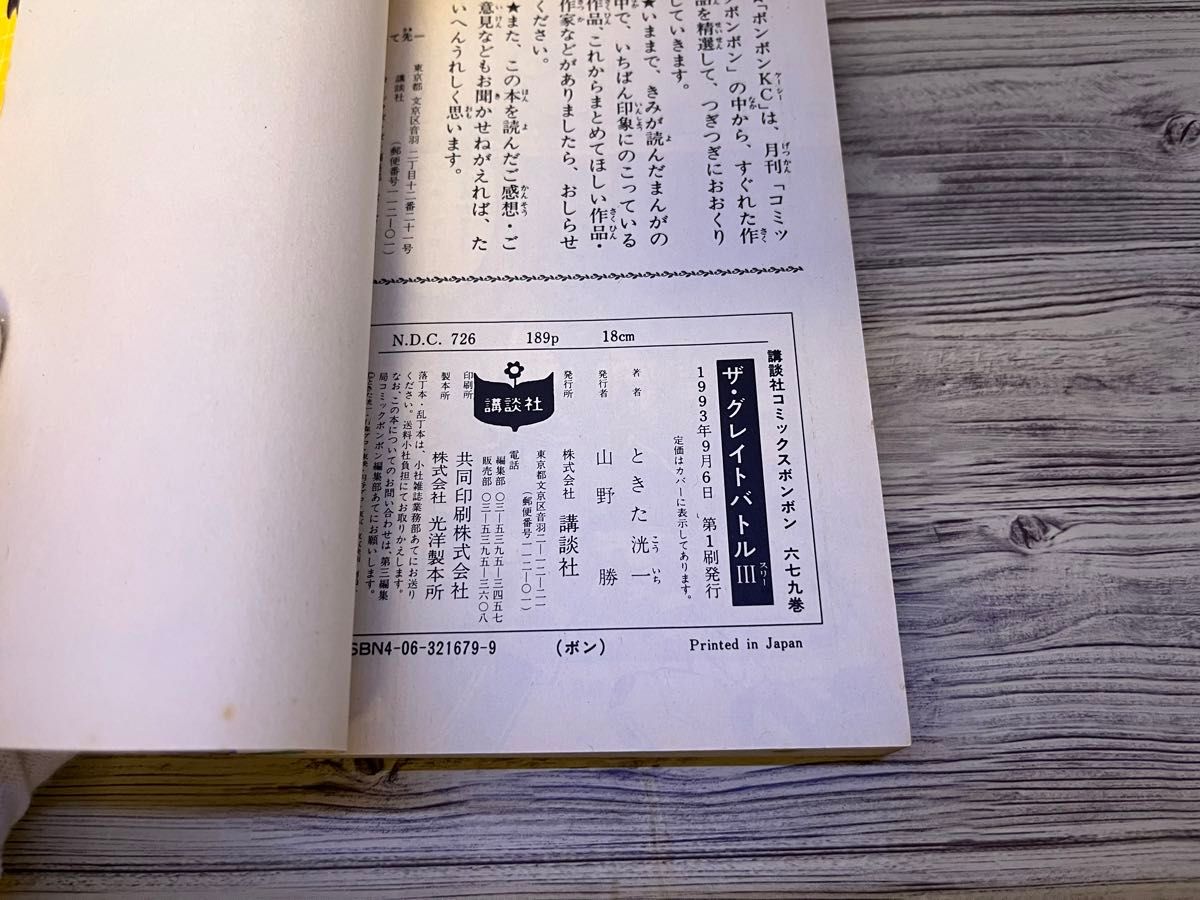 「ボンボンKC」は、月刊「コミッ
クボンボン」の中から、すぐれた作
品を精選して、つぎつぎにおおくり
していきます。
★いままで、きみが読んだまんがの
中で、いちばん印象にのこっている
作品、これからまとめてほしい作品・
作家などがありましたら、おしらせ
ください。
★また、この本を読んだご感想・ご
意見などもお聞かせねがえれば、た
いへんうれしく思います。
東京都文京区音羽二丁目十二番二十一号
講談社
(郵便番号一一二-〇一)
N.D.C. 726 189p 18cm
講談社コミックスボンボン 六七九巻
ザ・グレイトバトルIII
スリー
1993年9月6日 第1刷発行
定価はカバーに表示してあります。
著者 ときた洸一
こういち
発行者 山野勝
発行所 株式会社 講談社
東京都文京区音羽二-一二-二一
(郵便番号一一二-〇一)
電話 編集部 〇三-五三九五-三四五七
販売部 〇三-五三九五-三六〇八
講談社
印刷所 共同印刷株式会社
製本所 株式会社 光洋製本所
落丁本・乱丁本は、小社雑誌業務部あてにお送り
ください。送料小社負担にてお取りかえします。
なお、この本についてのお問い合わせは、第三編集
局コミックボンボン編集部あてにお願いします。
SBN4-06-321679-9 (ボン) Printed in Japan